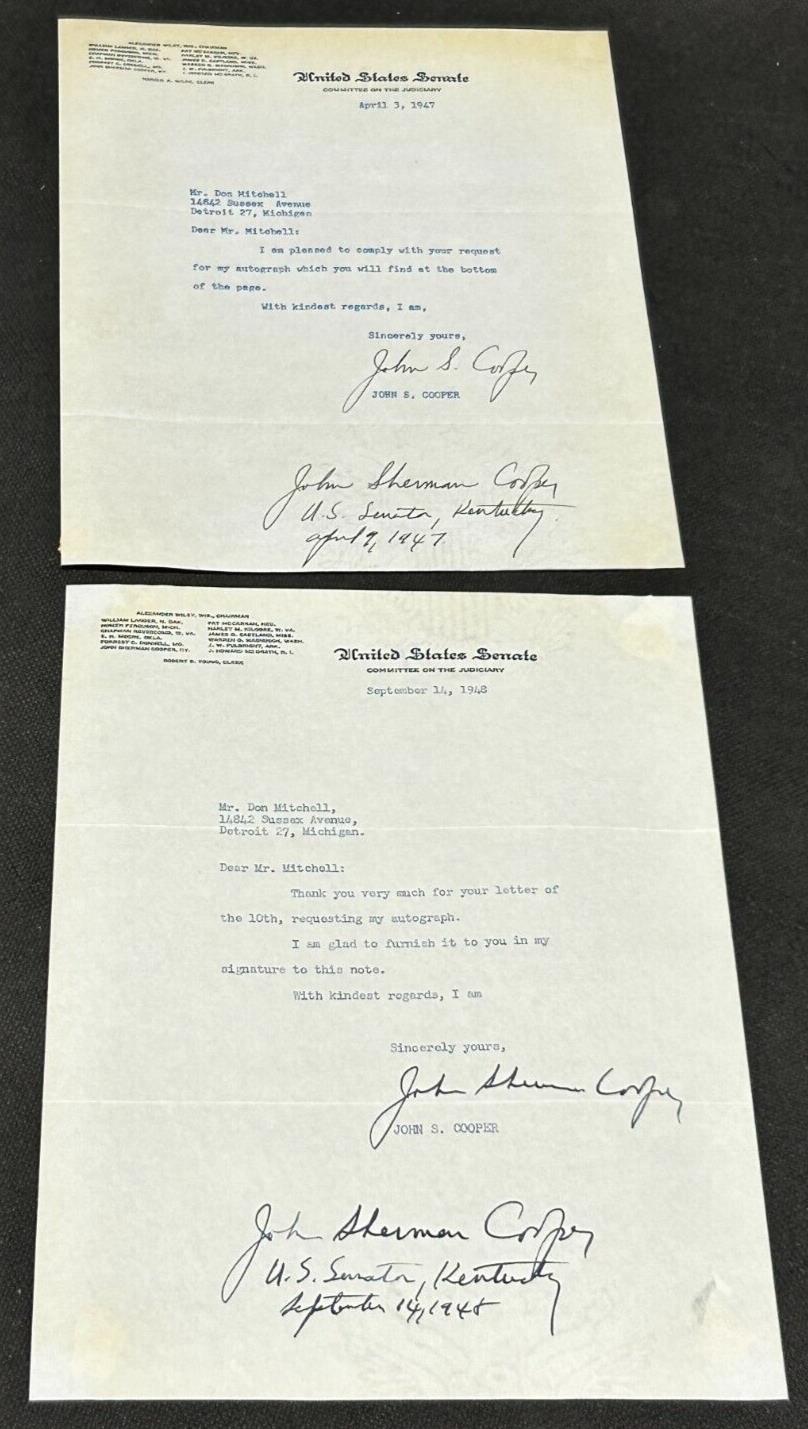 ALEXANDER WILEY, WIS., CHAIRMAN
WILLIAM LANGER, N. DAK. PAT MCCARRAN, NEV.
HOMER FERGUSON, MICH. HARLEY M. KILGORE, W. VA.
CHAPMAN REVERCOMB, W. VA. JAMES O. EASTLAND, MISS.
E. H. MOORE, OKLA. WARREN G. MAGNUSON, WASH.
FORREST C. DONNELL, MO. J. W. FULBRIGHT, ARK.
JOHN SHERMAN COOPER, KY. J. HOWARD MCGRATH, R. I.
CLERK
United States Senate
COMMITTEE ON THE JUDICIARY
April 3, 1947
Mr. Don Mitchell
14842 Sussex Avenue
Detroit 27, Michigan
Dear Mr. Mitchell:
I am pleased to comply with your request
for my autograph which you will find at the bottom
of the page.
With kindest regards, I am,
Sincerely yours,
John S. Cooper
JOHN S. COOPER
John Sherman Cooper
U.S. Senator, Kentucky.
April 9, 1947
ALEXANDER WILEY, WIS., CHAIRMAN
WILLIAM LANGER, N. DAK. PAT MCCARRAN, NEV.
HOMER FERGUSON, MICH. HARLEY M. KILGORE, W. VA.
CHAPMAN REVERCOMB, W. VA. JAMES O. EASTLAND, MISS.
E. H. MOORE, OKLA. WARREN G. MAGNUSON, WASH.
FORREST C. DONNELL, MO. J. W. FULBRIGHT, ARK.
JOHN SHERMAN COOPER, KY. J. HOWARD MCGRATH, R. I.
ROBERT B. YOUNG, CLERK
United States Senate
COMMITTEE ON THE JUDICIARY
September 14, 1948
Mr. Don Mitchell,
14842 Sussex Avenue,
Detroit 27, Michigan.
Dear Mr. Mitchell:
Thank you very much for your letter of
the 10th, requesting my autograph.
I am glad to furnish it to you in my
signature to this note.
With kindest regards, I am
Sincerely yours,
John Sherman Cooper
JOHN S. COOPER
John Sherman Cooper
U.S. Senator, Kentucky
September 14, 1948